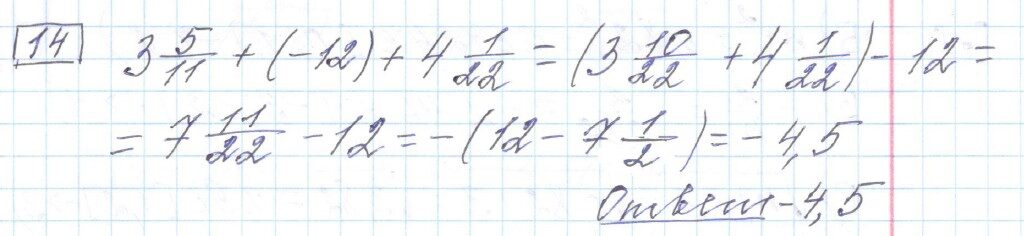 14 3 5/11 + (-12) + 4 1/22 = (3 10/22 + 4 1/22) - 12 =
= 7 11/22 - 12 = - (12 - 7 1/2) = - 4,5
Ответ - 4,5